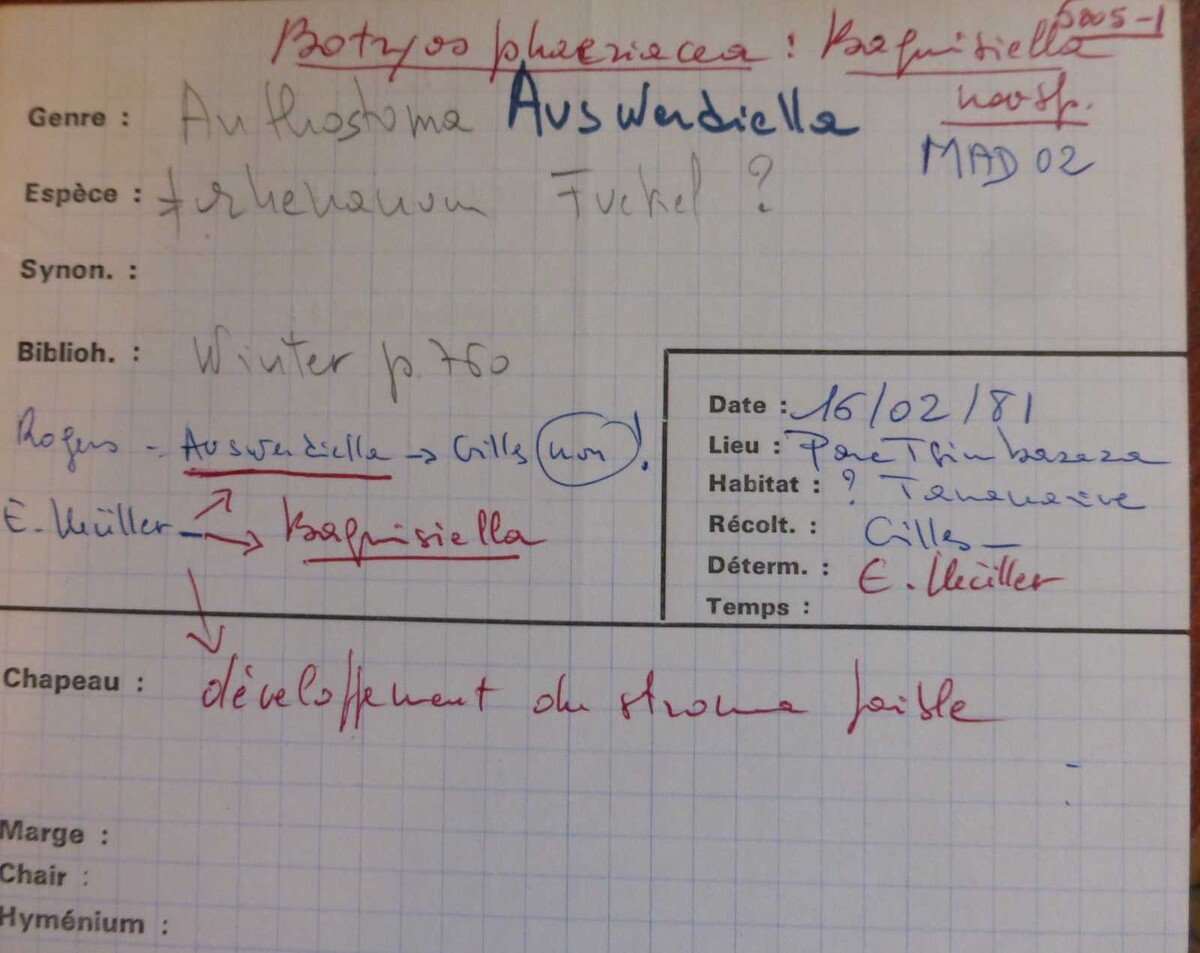 5005-1
Botryosphaeriacea : Bagnisiella
nov sp.
Genre : Anthostoma Auswerdiella
MAD 02
Espèce : rhenanum Fuckel ?
Synon. :
Biblioh. : Winter p. 760
Rogers - Auswerdiella → Gilles non !
E. Müller → Bagnisiella
Date : 16/02/81
Lieu : Parc Tsimbazaza
Habitat : ? Tananarive
Récolt. : Gilles
Déterm. : E. Müller
Temps :
Chapeau : développement du stroma faible
Marge :
Chair :
Hyménium :